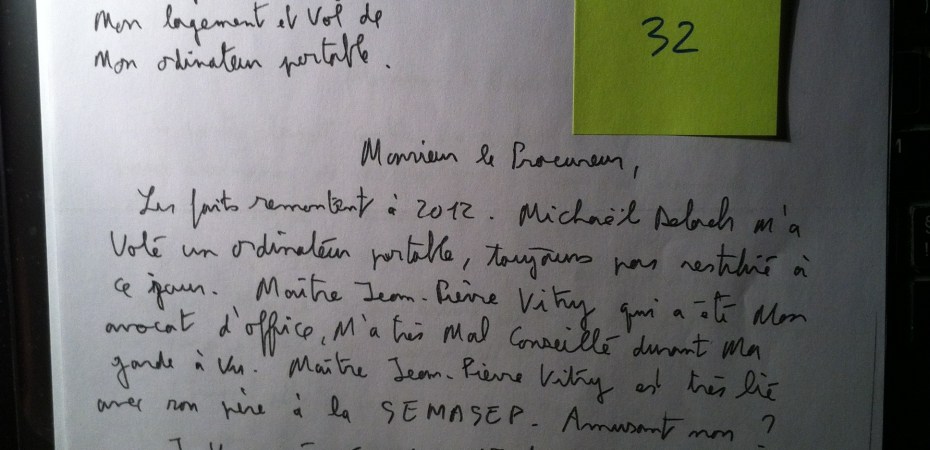 Mon logement et Vol de
Mon ordinateur portable.
32
Monsieur le Procureur,
Les faits remontent à 2012. Michaël m'a
Volé un ordinateur portable, toujours pas restitué à
ce jour. Maître Jean-Pierre Vitry qui a été Mon
avocat d'office, M'a très Mal Conseillé durant Ma
garde à Vu. Maître Jean-Pierre Vitry est très lié
avec son père à la SEMASEP. Amusant non ?